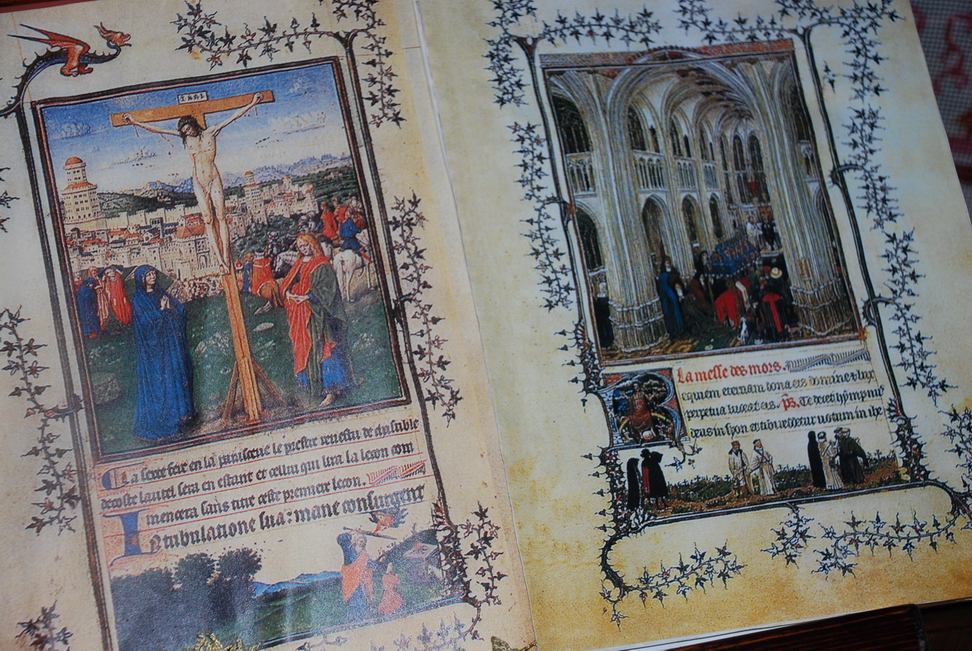 INRI
La sexte feir en la parisceue le prestre reuestu de chasuble
decoste lautel sera en estant et cellui qui lira la lecon com
mencera sans titre ceste premiere lecon.
In tribulatione sua: mane consurgent
La messe des mors.
Requiem eternam dona eis domine et lux
perpetua luceat eis. ps. Te decet hympnus
deus in syon et tibi reddetur uotum in ihe